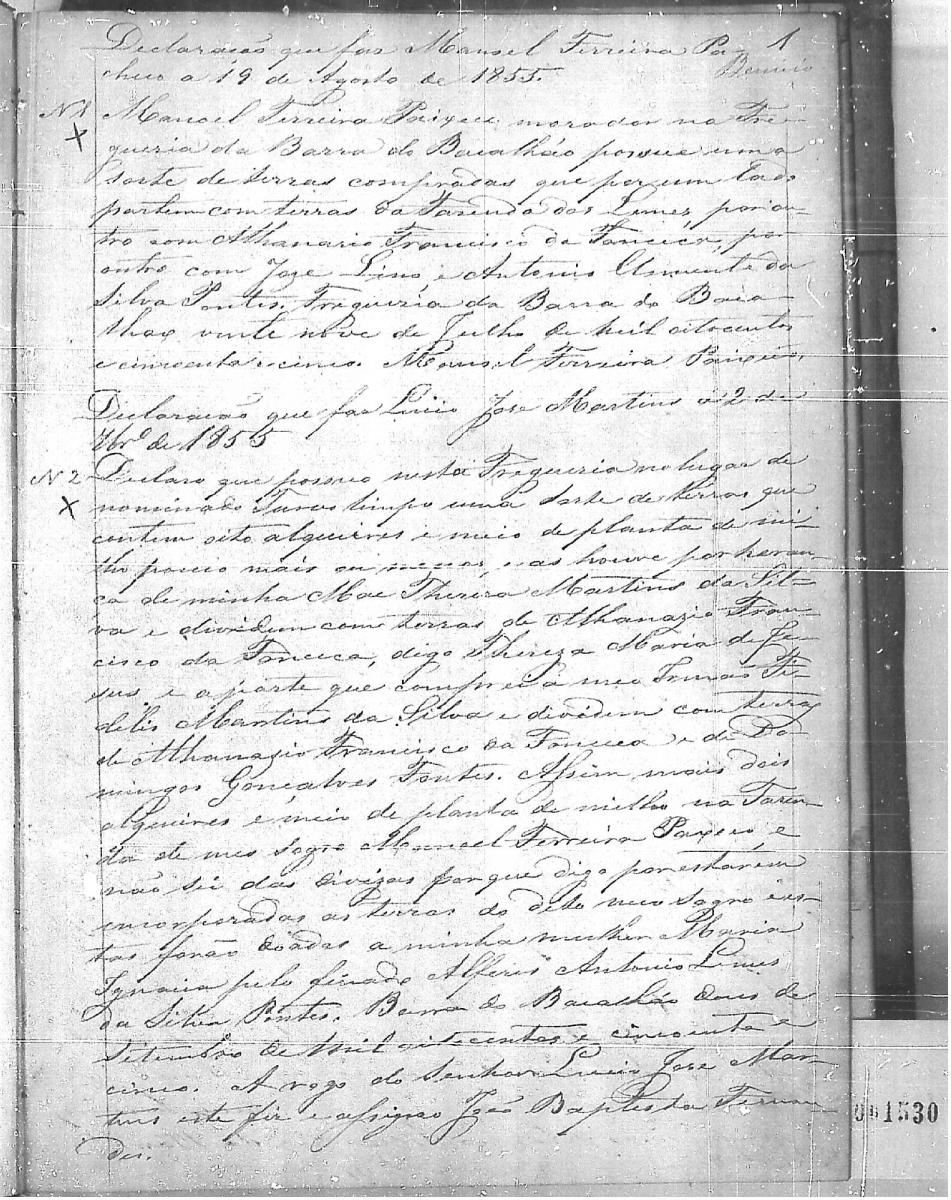 Declaracaõ que fas Manoel Ferreira Pa- 1
checo a 19 de Agosto de 1855.
N 1 Manoel Ferreira Paixeco morador na Fre-
X gueria da Barra do Bacalháo possue uma
sorte de terras compradas que por um lado
partem com terras da Fazenda dos Lemes, por ou-
tro com Athanazio Francisco da Fonceca, por
outro com Joze Lino, e Antonio da
Silva Pontes, Fregueria da Barra do Baca-
lhao vinte nove de Julho de mil oitocentos
e cincoenta e cinco. Manoel Ferreira Paixeco,
Declaracaõ que faz Lucio Joze Martins á 2 de
7br.º de 1855
N 2 Declaro que possuo nesta Fregueria no lugar de
X nominado uma sorte de terras que
contem oito alqueires e meio de planta de mi-
lho pouco mais ou menos, e as houve por heran-
ca de minha Mae Thereza Martins da Sil-
va e dividem com terras de Athanazio Fran-
cisco da Fonceca, digo Thereza Maria de Je-
sus, e a parte que comprei a meu Irmaõ Fi-
delis Martins da Silva e dividem com terras
de Athanazio Francisco da Fonceca e de Do-
mingos Goncalves Fontes. Assim mais dois
alqueires e meio de planta de milho na Fazen-
da de meo sogro Manoel Ferreira Paxeco e
naõ sei das divizas porque digo por estarem
encorporadas as terras do dito meu sogro e es-
tas foraõ doadas a minha mulher Maria
Ignacia pelo finado Alferes Antonio Lemes
da Silva Pontes. Barra do Bacalháo dous de
Setembro de mil oitocentos e cincoenta e
cinco. A rogo do Senhor Lucio Joze Mar-
tins este fiz e assigno Joaõ Baptista Fernan-
des.
1530